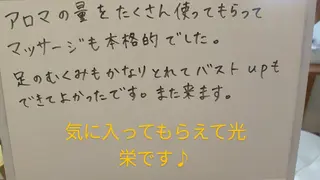 アロマの量をたくさん使ってもらって
マッサージも本格的でした。
足のむくみもかなりとれてバストupも
できてよかったです。また来ます。
気に入ってもらえて光
栄です♪